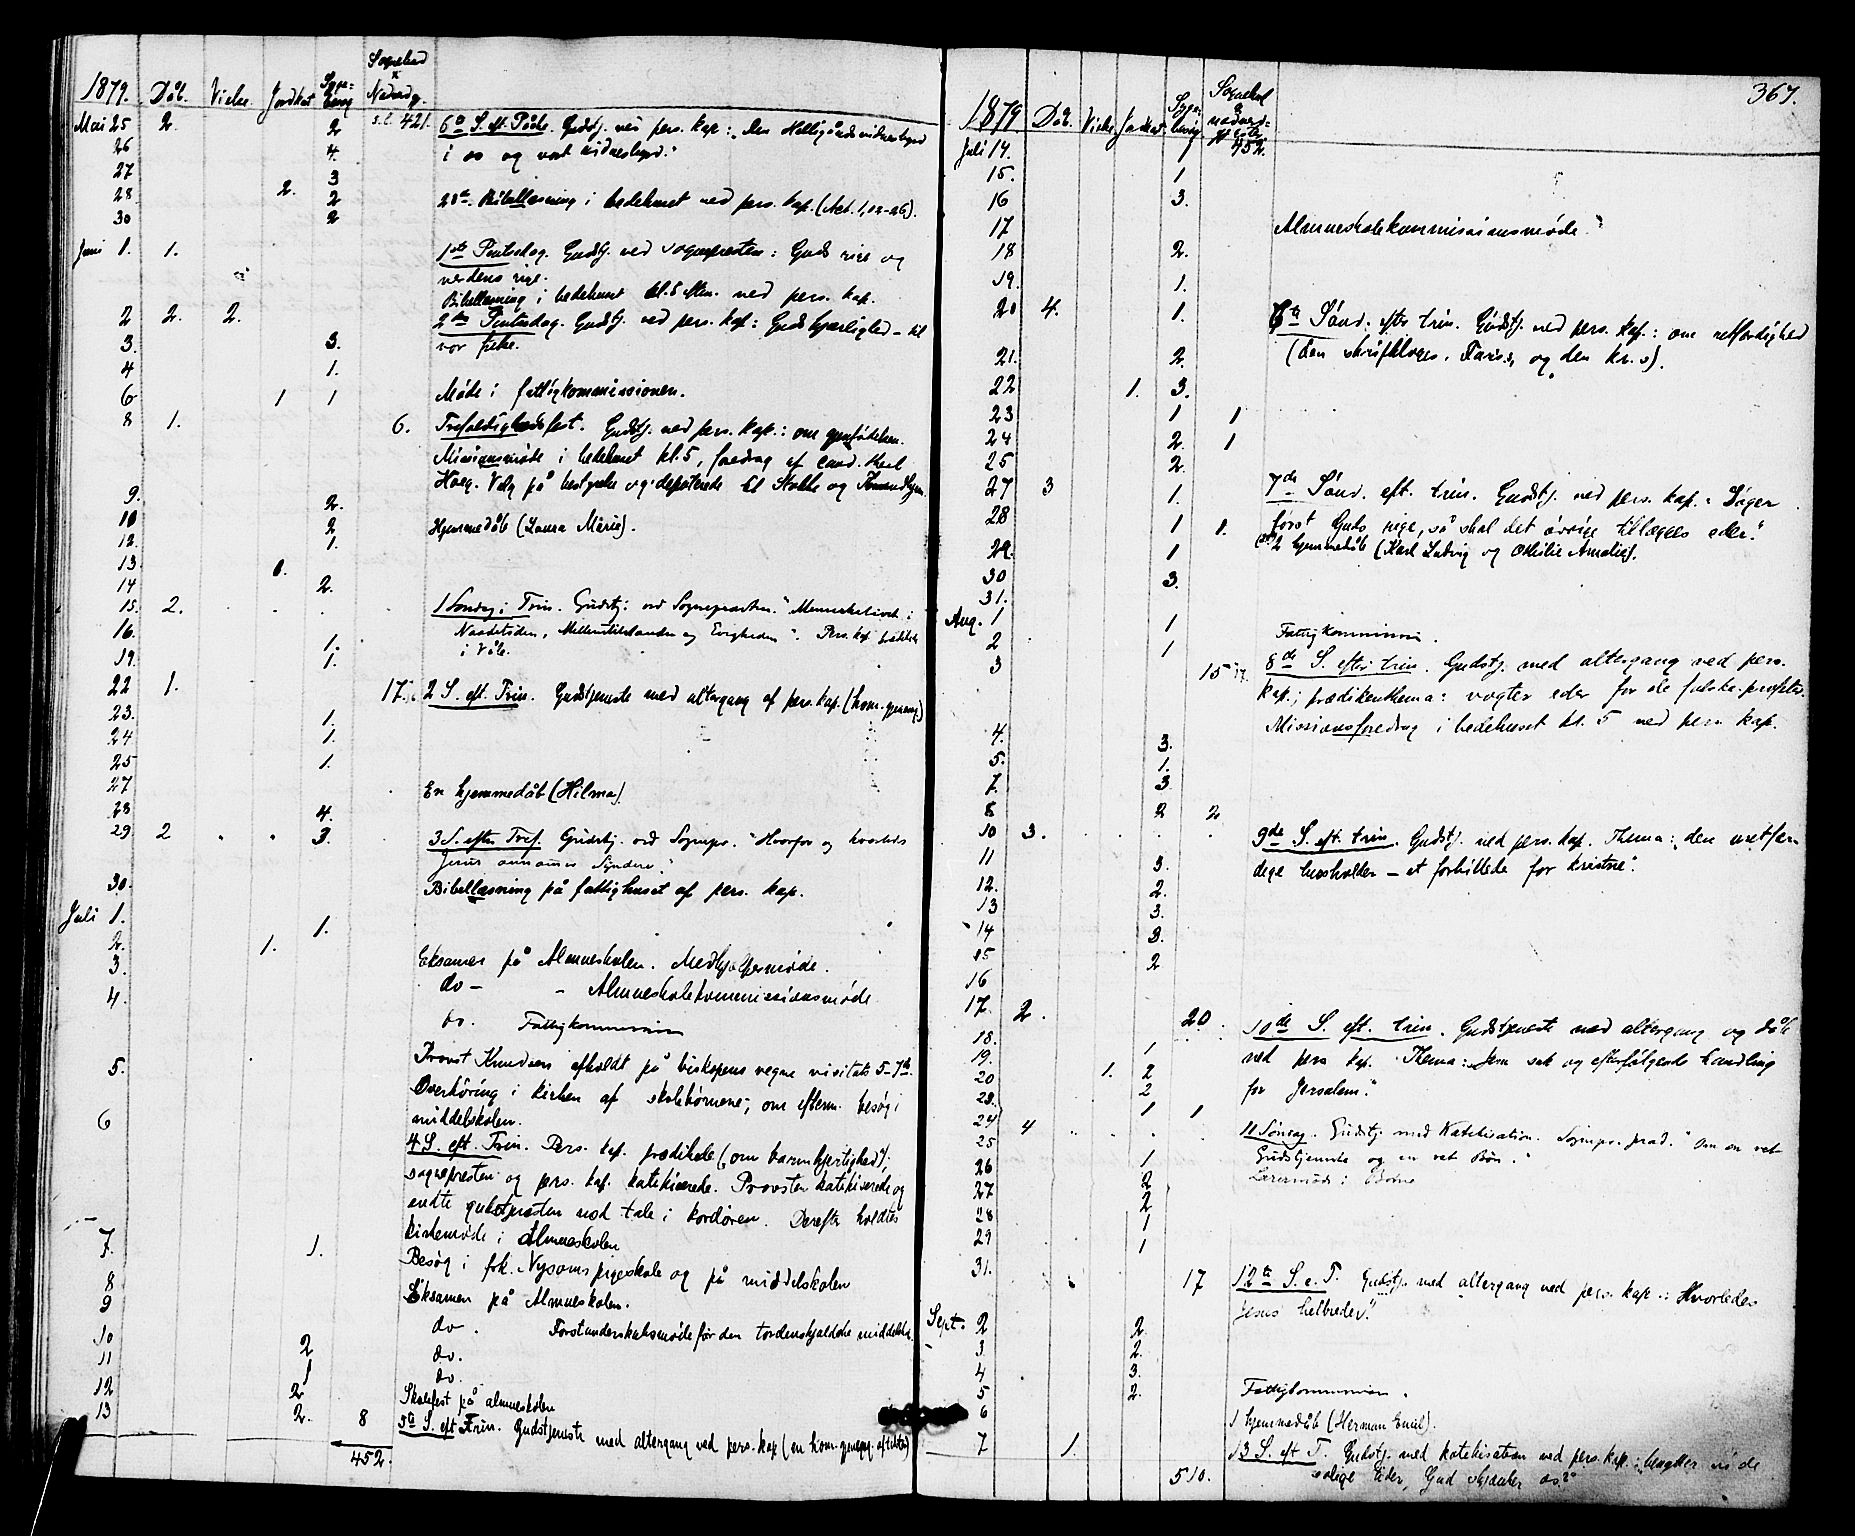 1879. Dåb. Vielse. Jordkast Syge-
Sognebud
x
Nadverdg.
Mai 25 2. 2 s.l. 421. 6te S. eft. Påske. Gudstj. ved pers. kap: Den Helligånds vidnesbyrd
26 4. i os og vort vidnesbyrd."
27 3
28 2. 2 28de. Bibellæsning i bedehuset ved pers. kap. (Act. 1,12-26).
30 2
Juni 1. 1. 1ste Pintsedag. Gudstj. ved sognepresten: Guds rige og
verdens rige.
Bibellæsning i bedehuset kl. 5 eftm. ved pers. kap.
2 2. 2. 2den Pintsedag. Gudstj. ved pers. kap: Guds kjærlighed – til
3. 3. vor frelse.
4 1.
6 1 1 Møde i fattigkommissionen.
8 1. 6. Trefoldighedsfest. Gudstj. ved pers. kap.: om gjenfødelsen.
Missionsmøde i bedehuset kl. 5, foredrag af cand.
Valg på bestyrelse og deputerede til Stokke og
9. 2.
10 2 Hjemmedåb (Laura Marie).
12. 1.
13.
14 2.
15. 2. 1 Sondag i Trin. Gudstj: ved Sognepræsten. "Menneskelivet i
16. 1. Naadetiden, Mellemtilstanden og Evigheden". Pers. kap
19. 1. i Våle.
22 1. 17. 2 S. eft. Trin. Gudstjeneste med altergang af pers. kap.
23. 1.
24 1.
25 1.
27 En hjemmedåb (Hilma)
28 4.
29 2 3. 3 S. efter Tref. Gudstj. ved Sognepr. "Hvorfor og hvorledes
Jesus annammer Syndere."
30. Bibellæsning på fattighuset af pers. kap.
Juli 1. 1.
2. 1.
3. Eksamen på Almueskolen. Medhjælpermøde.
4. do – – Almueskolekommissionsmøde
do. Fattigkommission
5. Provst Knudsen afholdt på biskopens vegne visitats 5–7de.
Overhöring i kirken af skolebørnene; om efterm. besøg i
6 middelskolen.
4 S. eft. Trin. Pers. kap. prædikede ("om barmhjertighed");
sognepresten og pers. kap. katekiserede. Provsten katekiserede og
endte gudstjenesten med tale i kordøren. Derefter holdtes
7. 1. kirkemøde i Almueskolen
Besøg i frk. Nysoms pigeskole og på middelskolen
8 Eksamen på Almueskolen.
9 do. Forstanderskabsmøde før den tordenskjoldske middelsk.
10 2 do.
11 1 do.
12 2 Skolefest på almueskolen
13 2. 8 5te S. eft Trin. Gudstjeneste med altergang ved pers. kap
452.
367.
1879 Dåb. Vielse Jordkast. Syge-
Juli 14. 1 452.
15. 1
16 3.
17 Almueskolekommissionsmøde."
18 2.
19. 1.
20 4. 1. 6te Sönd. efter trin. Gudstj. ved pers. kap.: om retfærdighed
21. 2. (den skriftkloges, og den kr.s).
22 1. 3.
23 1 1
24 2. 1
25 2.
27 3 1. 7de Sönd. eft. trin. Gudstj. ved pers. kap.: Söger
28 1 1. först Guds rige, så skal det övrige tillægges eder."
29. 1 2 hjemmedåb (Karl Ludvig og Othilie Amalie).
30 3.
31.
Aug. 1 1 Fattigkommission.
2 1
3 15 8de S. efter trin. Gudstj. med altergang ved pers.
kap.; prædikenthema: vogter eder for de falske profeter.
Missionsforedrag i bedehuset kl. 5 ved pers. kap.
4. 3.
5. 1.
7. 3
8 2 2
10 3. 9de S. eft. trin. Gudstj. ved pers. kap. Thema: "den uretfær-
11 3. dige husholder – et forbillede for kristne".
12. 2.
13 3.
14 3.
15 2
16
17. 2. 20 10de S. eft. trin. Gudstjeneste med altergang og dåb
18. 1 ved pers kap. Thema: sak og efterfølgende handling
19. for Jerusalem."
20 1. 2
23. 2
24 4 1 1 11 Søndag. Gudstj med Katekisation. Sognepr. præd. "Om en ret
25 Gudstjeneste og en ret Bøn."
26 1 Lærermøde i
27 2
28 2
29 1
31. 1 17 12te S. e. T. Gudstj. med altergang ved pers. kap.: Hvorledes
Jesus helbreder."
Sept. 2 2.
3. 2.
4 3.
5 2. Fattigkommission.
6 1 hjemmedåb (Herman Emil).
7 1. 13 S. eft T. Gudstj. med katekisation ved pers. kap.: benytter vi de
510. salige tider, Gud skjænker os?"